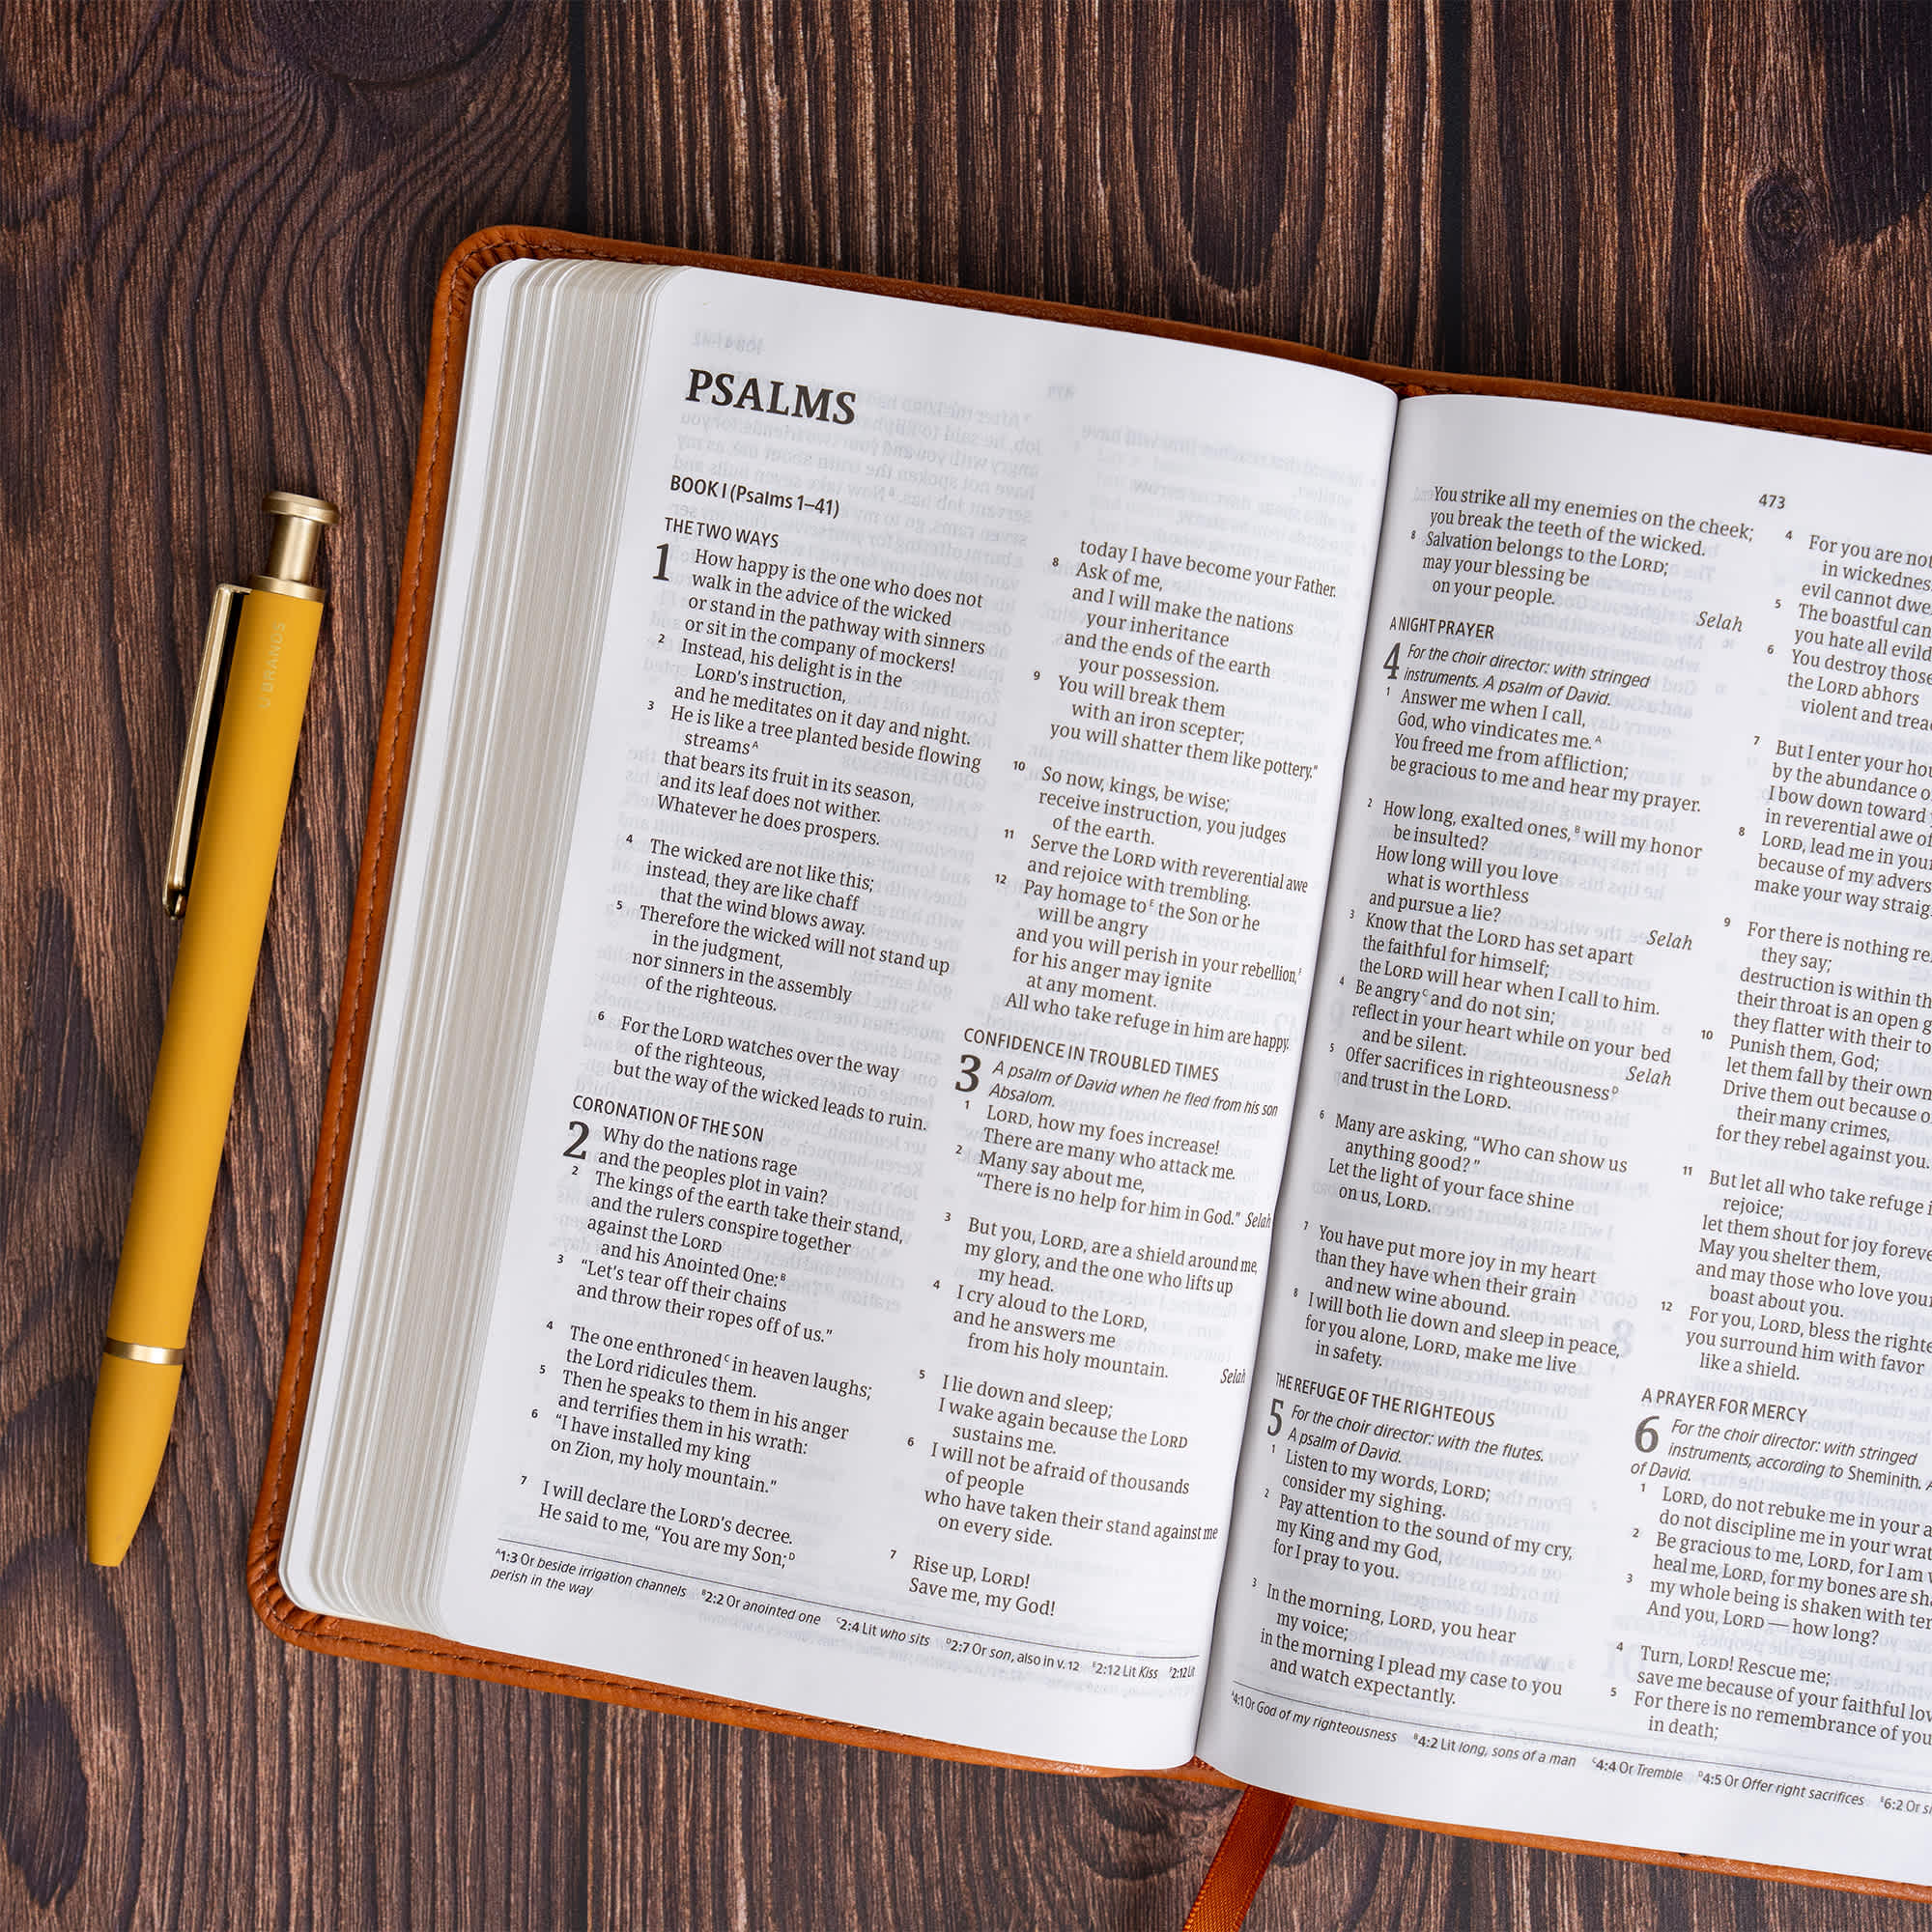 U BRANDS
PSALMS
BOOK I (Psalms 1–41)
THE TWO WAYS
1 How happy is the one who does not
walk in the advice of the wicked
or stand in the pathway with sinners
or sit in the company of mockers!
2 Instead, his delight is in the
LORD's instruction,
and he meditates on it day and night.
3 He is like a tree planted beside flowing
streams A
that bears its fruit in its season,
and its leaf does not wither.
Whatever he does prospers.
4 The wicked are not like this;
instead, they are like chaff
that the wind blows away.
5 Therefore the wicked will not stand up
in the judgment,
nor sinners in the assembly
of the righteous.
6 For the LORD watches over the way
of the righteous,
but the way of the wicked leads to ruin.
CORONATION OF THE SON
2 Why do the nations rage
and the peoples plot in vain?
2 The kings of the earth take their stand,
and the rulers conspire together
against the LORD
and his Anointed One: B
3 “Let's tear off their chains
and throw their ropes off of us.”
4 The one enthroned C in heaven laughs;
the Lord ridicules them.
5 Then he speaks to them in his anger
and terrifies them in his wrath:
6 “I have installed my king
on Zion, my holy mountain.”
7 I will declare the LORD's decree.
He said to me, “You are my Son; D
today I have become your Father.
8 Ask of me,
and I will make the nations
your inheritance
and the ends of the earth
your possession.
9 You will break them
with an iron scepter;
you will shatter them like pottery.”
10 So now, kings, be wise;
receive instruction, you judges
of the earth.
11 Serve the LORD with reverential awe
and rejoice with trembling.
12 Pay homage to E the Son or he
will be angry
and you will perish in your rebellion, F
for his anger may ignite
at any moment.
All who take refuge in him are happy.
CONFIDENCE IN TROUBLED TIMES
3 A psalm of David when he fled from his son
Absalom.
1 LORD, how my foes increase!
There are many who attack me.
2 Many say about me,
“There is no help for him in God.” Selah
3 But you, LORD, are a shield around me,
my glory, and the one who lifts up
my head.
4 I cry aloud to the LORD,
and he answers me
from his holy mountain. Selah
5 I lie down and sleep;
I wake again because the LORD
sustains me.
6 I will not be afraid of thousands
of people
who have taken their stand against me
on every side.
7 Rise up, LORD!
Save me, my God!
A 1:3 Or beside irrigation channels B 2:2 Or anointed one C 2:4 Lit who sits D 2:7 Or son, also in v. 12 E 2:12 Lit Kiss F 2:12 Lit
perish in the way
473
You strike all my enemies on the cheek;
you break the teeth of the wicked.
8 Salvation belongs to the LORD;
may your blessing be
on your people. Selah
A NIGHT PRAYER
4 For the choir director: with stringed
instruments. A psalm of David.
1 Answer me when I call,
God, who vindicates me. A
You freed me from affliction;
be gracious to me and hear my prayer.
2 How long, exalted ones, B will my honor
be insulted?
How long will you love
what is worthless
and pursue a lie? Selah
3 Know that the LORD has set apart
the faithful for himself;
the LORD will hear when I call to him.
4 Be angry C and do not sin;
reflect in your heart while on your bed
and be silent. Selah
5 Offer sacrifices in righteousness D
and trust in the LORD.
6 Many are asking, “Who can show us
anything good?”
Let the light of your face shine
on us, LORD.
7 You have put more joy in my heart
than they have when their grain
and new wine abound.
8 I will both lie down and sleep in peace,
for you alone, LORD, make me live
in safety.
THE REFUGE OF THE RIGHTEOUS
5 For the choir director: with the flutes.
A psalm of David.
1 Listen to my words, LORD;
consider my sighing.
2 Pay attention to the sound of my cry,
my King and my God,
for I pray to you.
3 In the morning, LORD, you hear
my voice;
in the morning I plead my case to you
and watch expectantly.
4 For you are not
in
evil cannot
5 The boastful
you hate all
6 You destroy those
the LORD abhors
violent and
7 But I enter your
by the abundance
I bow down toward
in reverential awe
8 LORD, lead me in
because of my
make your way
9 For there is nothing
they say;
destruction is within
their throat is an open
they flatter with their
10 Punish them, God;
let them fall by their own
Drive them out because
their many crimes,
for they rebel against you.
11 But let all who take refuge
rejoice;
let them shout for joy
May you shelter them,
and may those who love
boast about you.
12 For you, LORD, bless the
you surround him with favor
like a shield.
A PRAYER FOR MERCY
6 For the choir director: with stringed
instruments, according to Sheminith.
of David.
1 LORD, do not rebuke me in your
do not discipline me in your
2 Be gracious to me, LORD, for I am
heal me, LORD, for my bones are
3 my whole being is shaken with
And you, LORD — how long?
4 Turn, LORD! Rescue me;
save me because of your faithful
5 For there is no remembrance of
in death;
A 4:1 Or God of my righteousness B 4:2 Lit long, sons of a man C 4:4 Or Tremble D 4:5 Or Offer right sacrifices E 6:2 Or